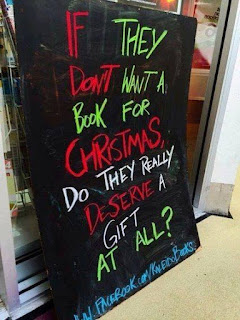 IF THEY
DON'T WANT A
BOOK FOR
CHRISTMAS,
DO THEY REALLY
DESERVE A
GIFT
AT ALL?
W.W. FACEBOOK.COM/KALEIDOBOOKS.